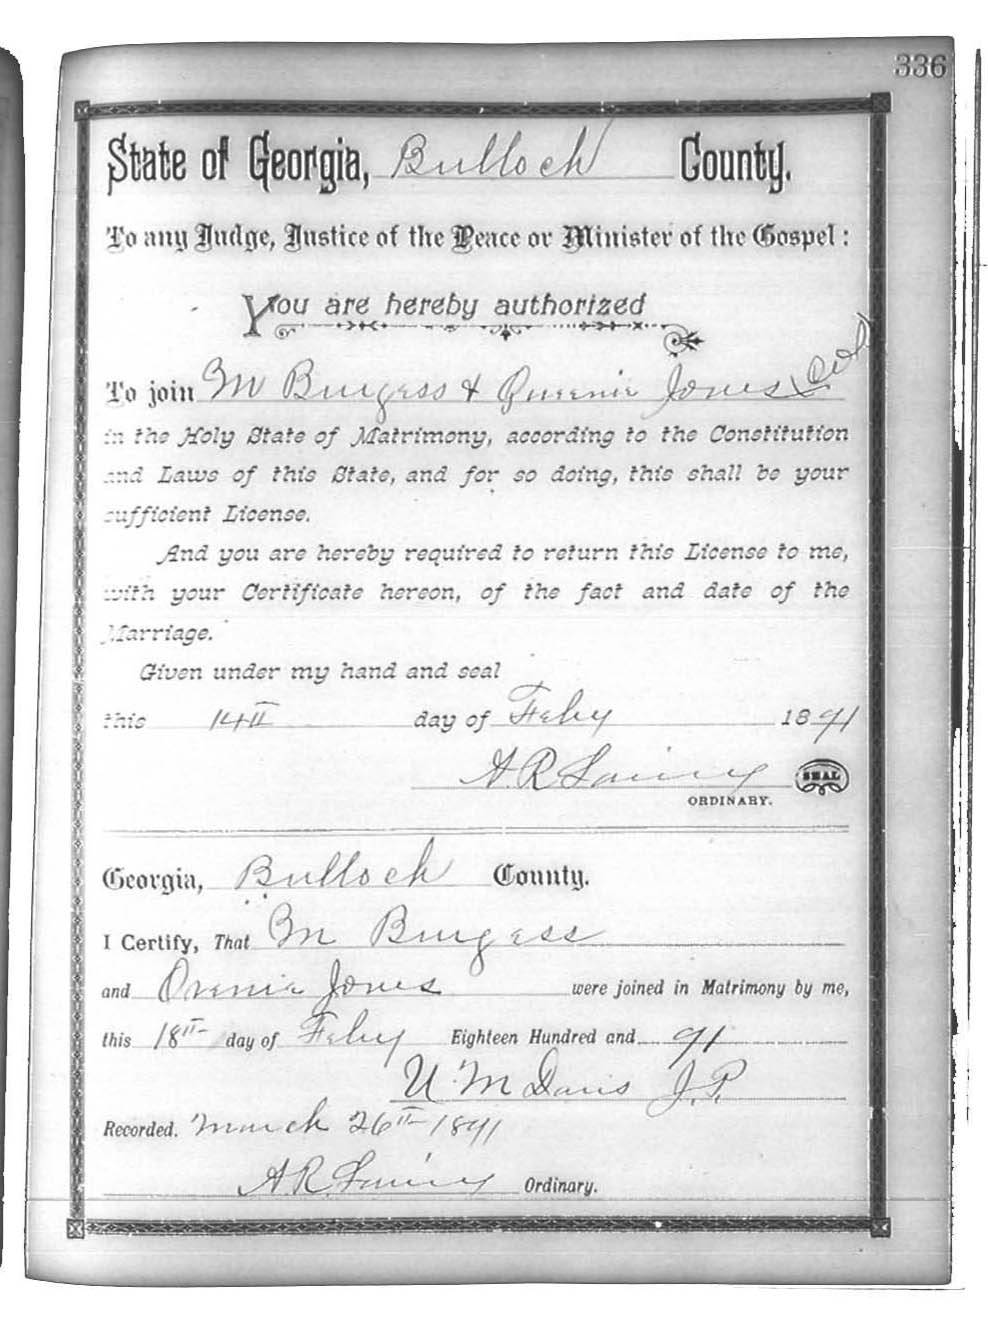 336
State of Georgia, Bulloch County.
To any Judge, Justice of the Peace or Minister of the Gospel:
You are hereby authorized
To join M Burgess & Queenie Jones Col
in the Holy State of Matrimony, according to the Constitution
and Laws of this State, and for so doing, this shall be your
sufficient License.
And you are hereby required to return this License to me,
with your Certificate hereon, of the fact and date of the
Marriage.
Given under my hand and seal
this 14th day of Feby 1891
A. R. Lanier SEAL
ORDINARY.
Georgia, Bulloch County.
I Certify, That M Burgess
and Jones were joined in Matrimony by me,
this 18th day of Feby Eighteen Hundred and 91
U. M Davis J. P.
Recorded. March 26th 1891
A. R. Lanier Ordinary.